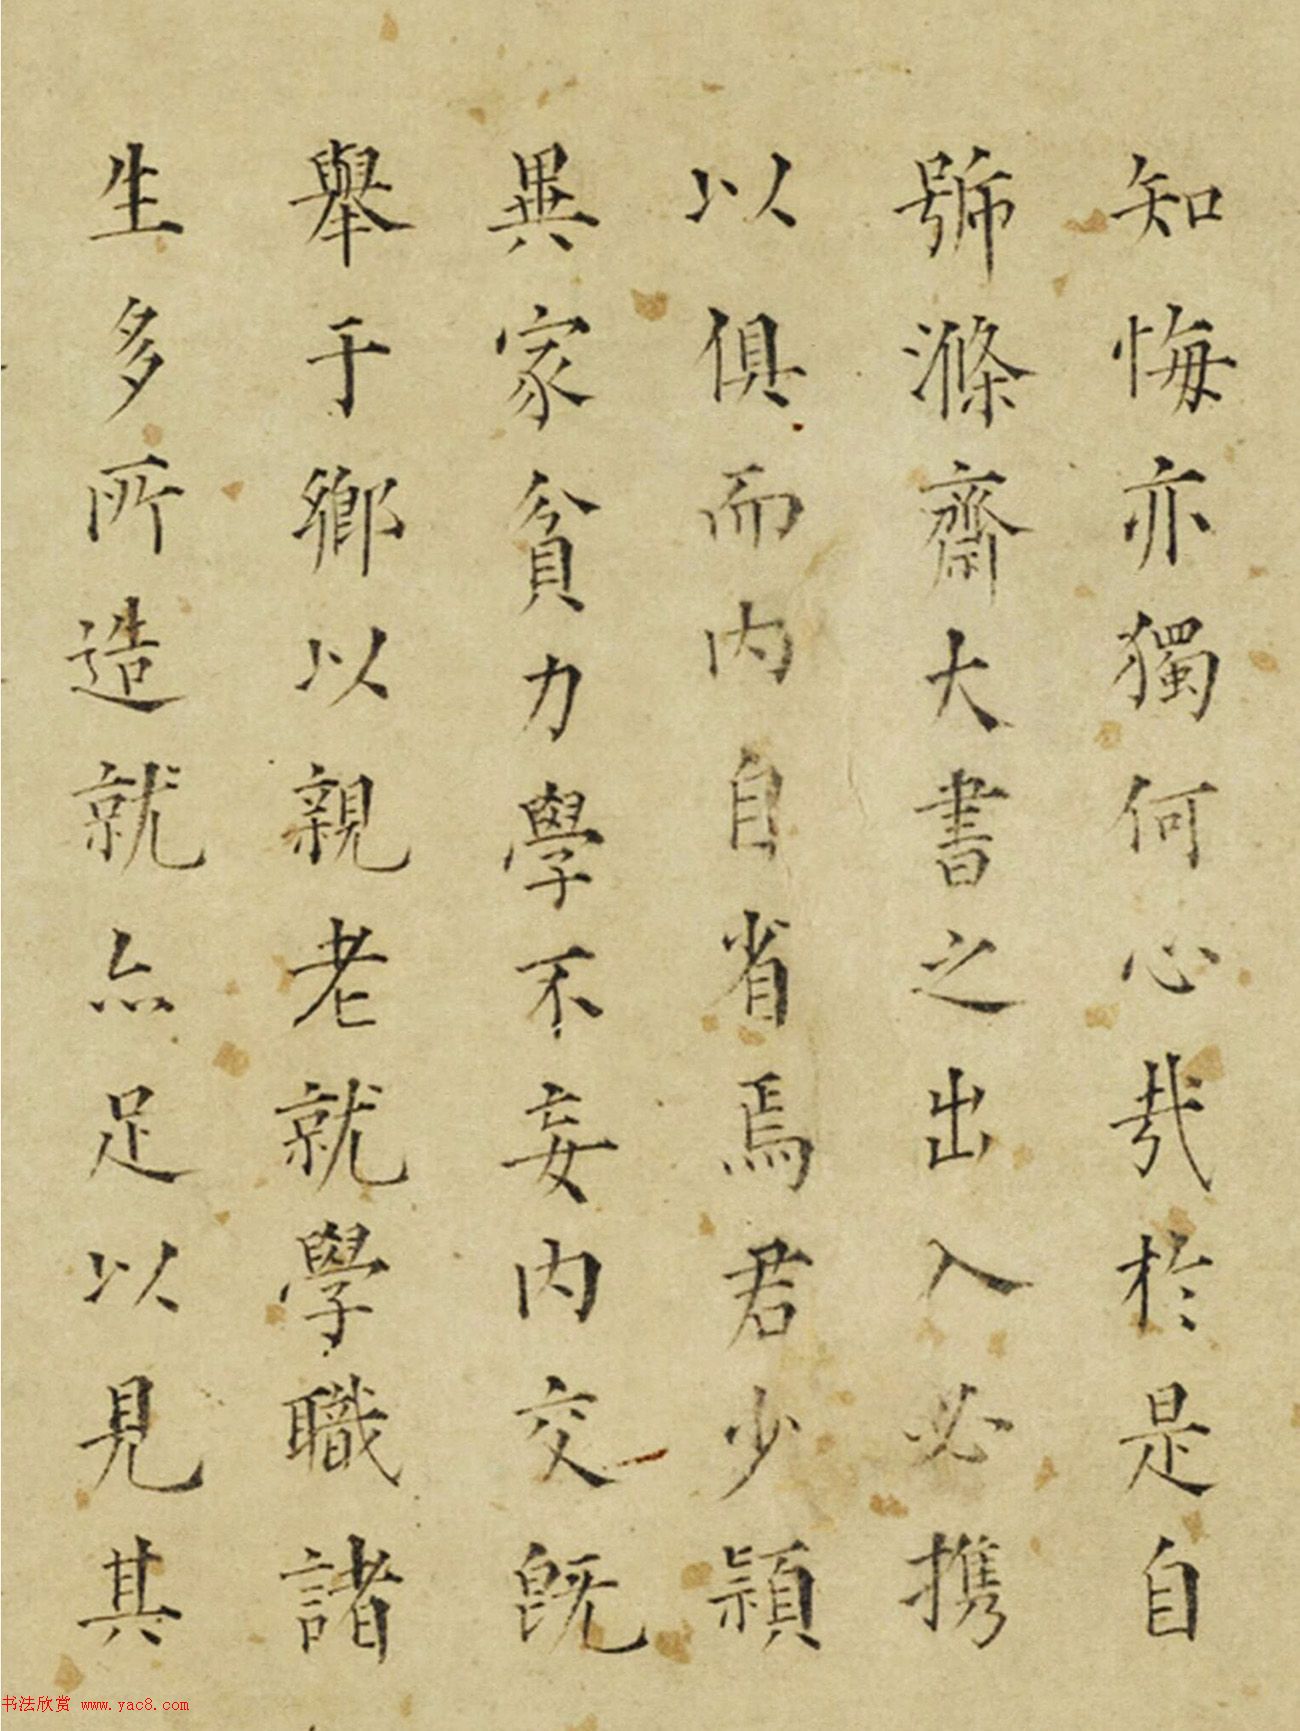 知悔亦獨何心哉於是自
號滌齋大書之出入必携
以俱而内自省焉君少穎
異家貧力學不妄内交既
舉于鄉以親老就學職諸
生多所造就亦足以見其
书法欣赏 www.yac8.com